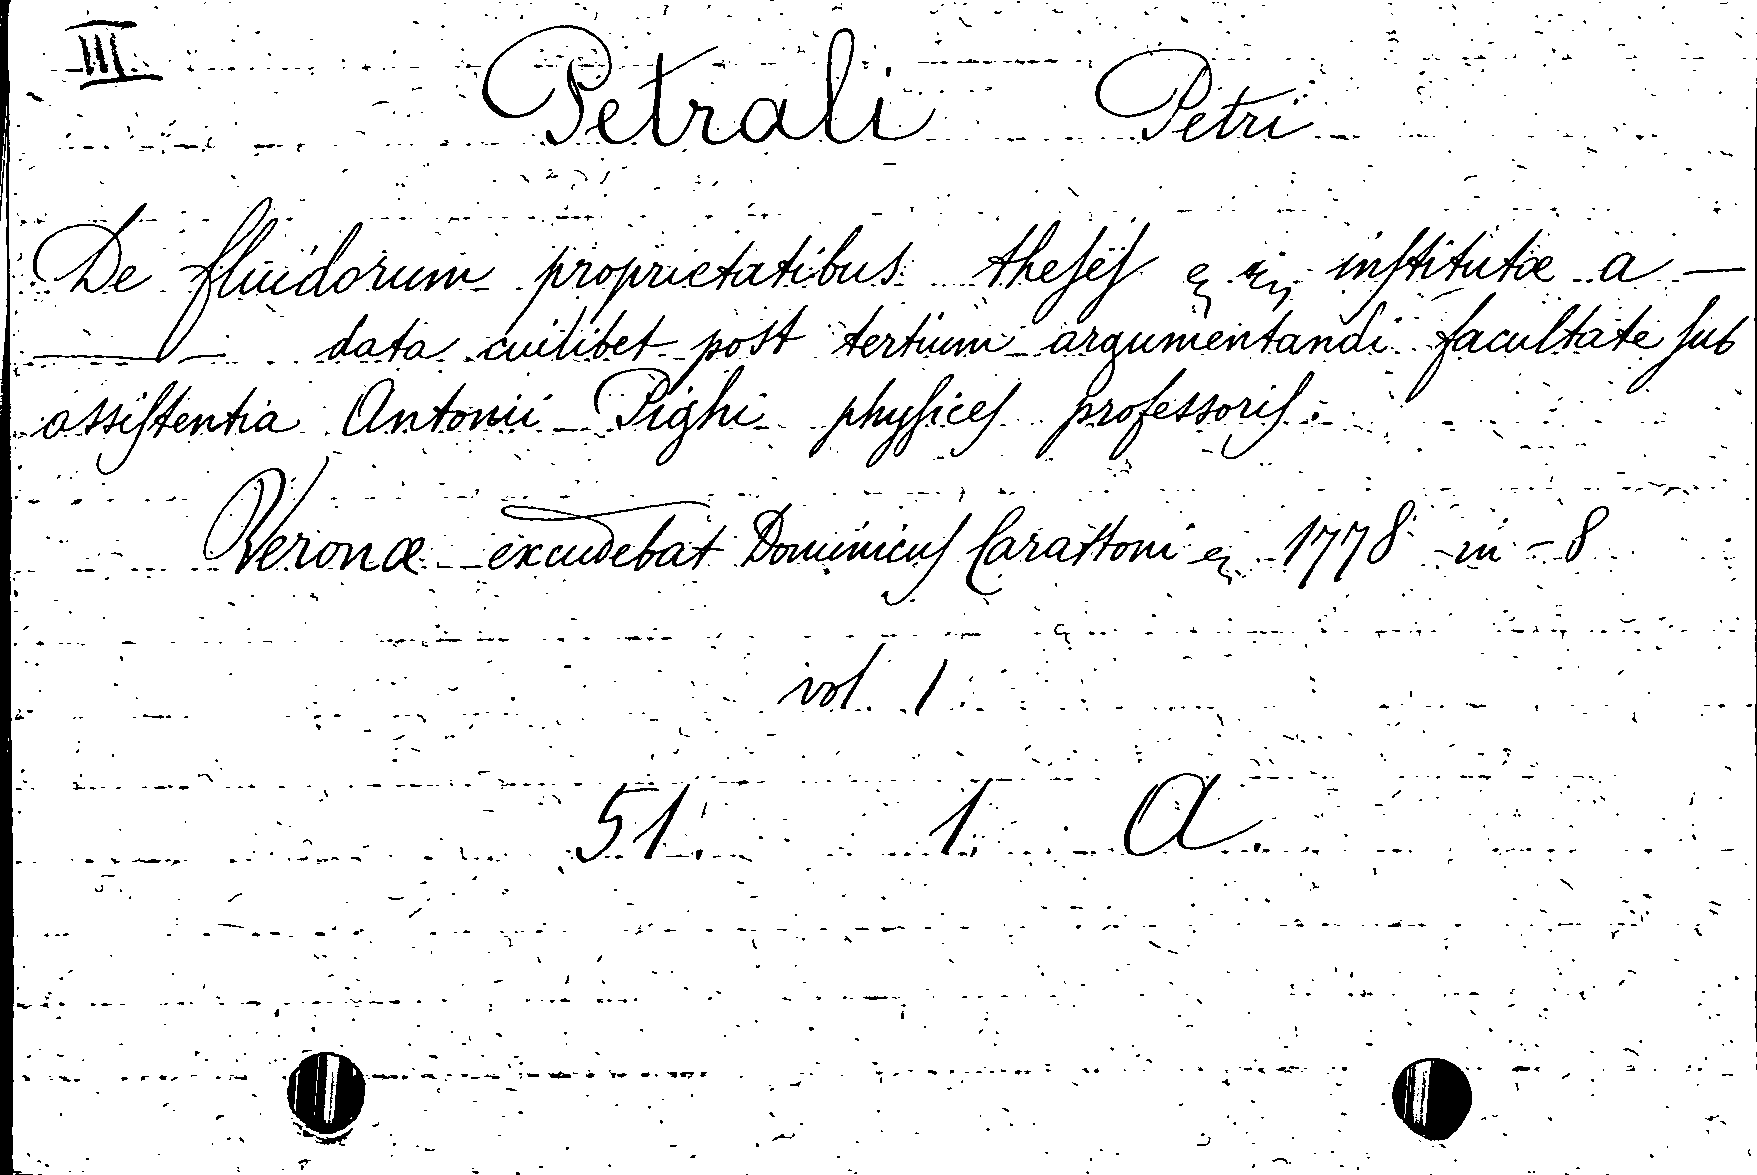 III
Petrali Petri
De fluidorum proprietatibus theſeſ inſtitutæ a —
— — data cuilibet post tertium argumentandi facultate ſub
aſsiſtentia Antonii Pighi phyſiceſ profeſsoriſ.
Veronæ excudebat Dominicuſ Carattoni 1778 in - 8
vol. 1
51. 1. A.